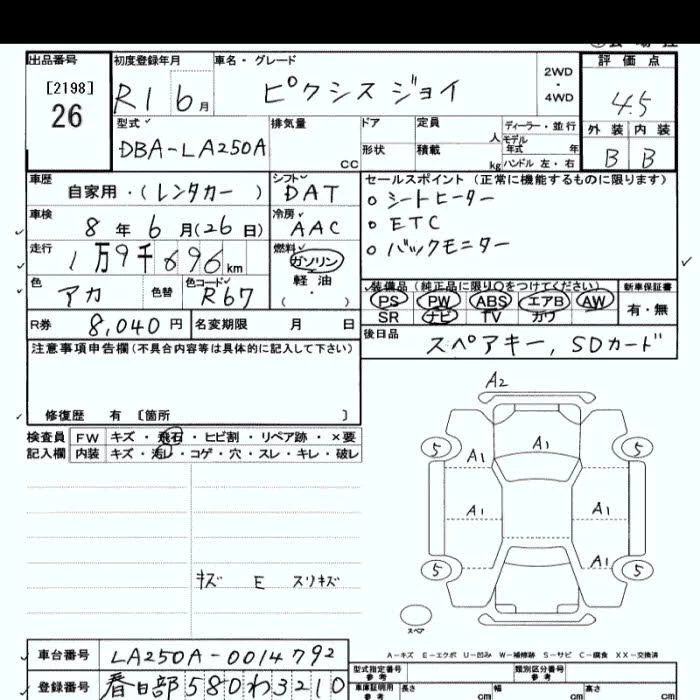 出品番号 初度登録年月 車名・グレード 評価点
[2198] 26 R1 6月 ピクシス ジョイ 2WD・4WD 4.5
型式 排気量 ドア 定員 人 ディーラー・並行 外装 内装
DBA-LA250A cc 形状 積載 kg モデル年式 年 ハンドル 左・右 B B
車歴 自家用・(レンタカー) シフト DAT セールスポイント(正常に機能するものに限ります)
シートヒーター
車検 8年6月(26日) 冷房 AAC ETC
走行 1万9千696km 燃料 ガソリン バックモニター
軽油
色 アカ 色替 色コード R67 ( ・ ) 装備品(純正品に限り○をつけてください) 新車保証書
PS PW ABS エアB AW 有・無
R券 8,040円 名変期限 月 日 SR ナビ TV カワ
注意事項申告欄(不具合内容等は具体的に記入して下さい) 後日品 スペアキー, SDカード
修復歴 有 〔箇所 〕
検査員 FW キズ・飛石・ヒビ割・リペア跡・×要
記入欄 内装 キズ・汚れ・コゲ・穴・スレ・キレ・破レ
A2
5 A1 5
A1 A1
A1 A1
5 A1 5
スペア
キズ E スリキズ
A-キズ E-エクボ U-凹み W-補修跡 S-サビ C-腐食 XX-交換済
車台番号 LA250A-0014792 型式指定番号 参考 類別区分番号 参考
登録番号 春日部580わ3210 車庫証明用 参考 長さ cm 幅 cm 高さ cm